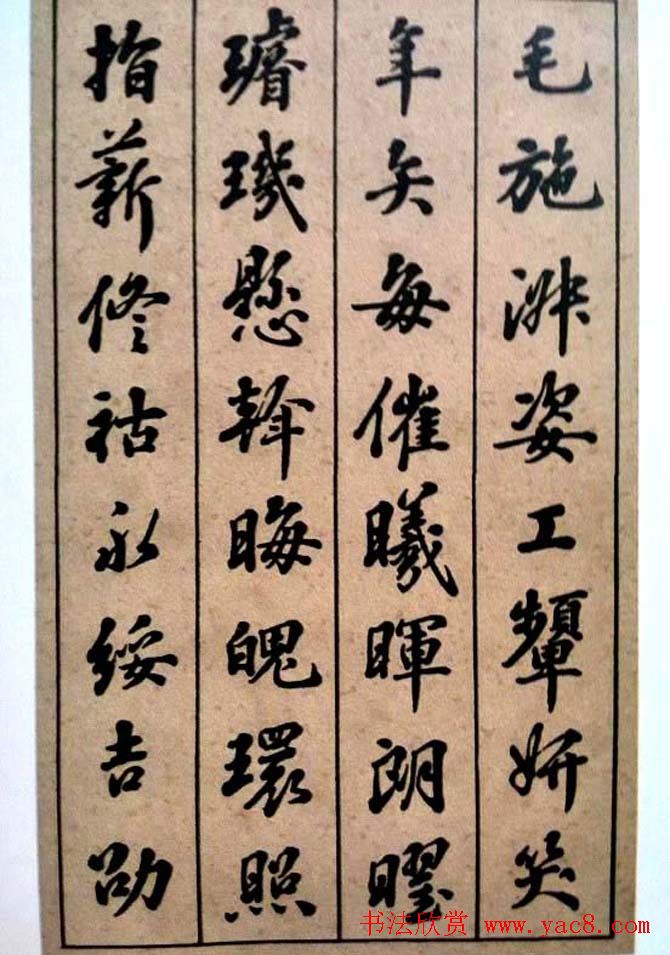 毛施淑姿工顰妍笑
年矢每催曦暉朗曜
璿璣懸斡晦魄環照
指薪修祜永綏吉劭
书法欣赏 www.yac8.com